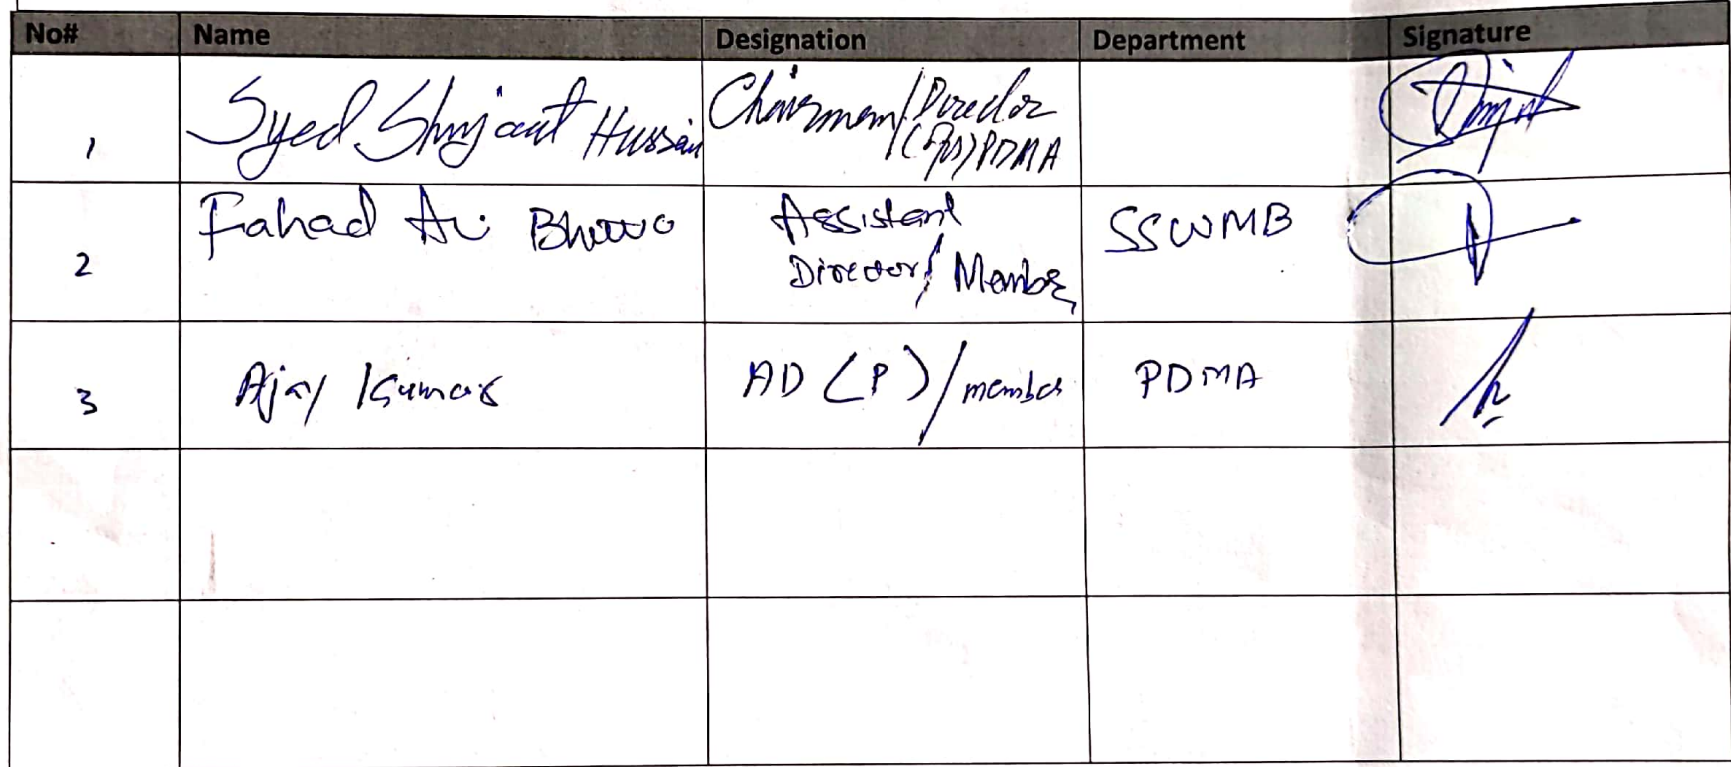 No# Name Designation Department Signature
1 Syed Shujaat Hussain Chairman/Director
(Ops) PDMA
2 Fahad Ali Assistant SSWMB
Director/ Member
3 Ajay Kumar AD (P)/member PDMA